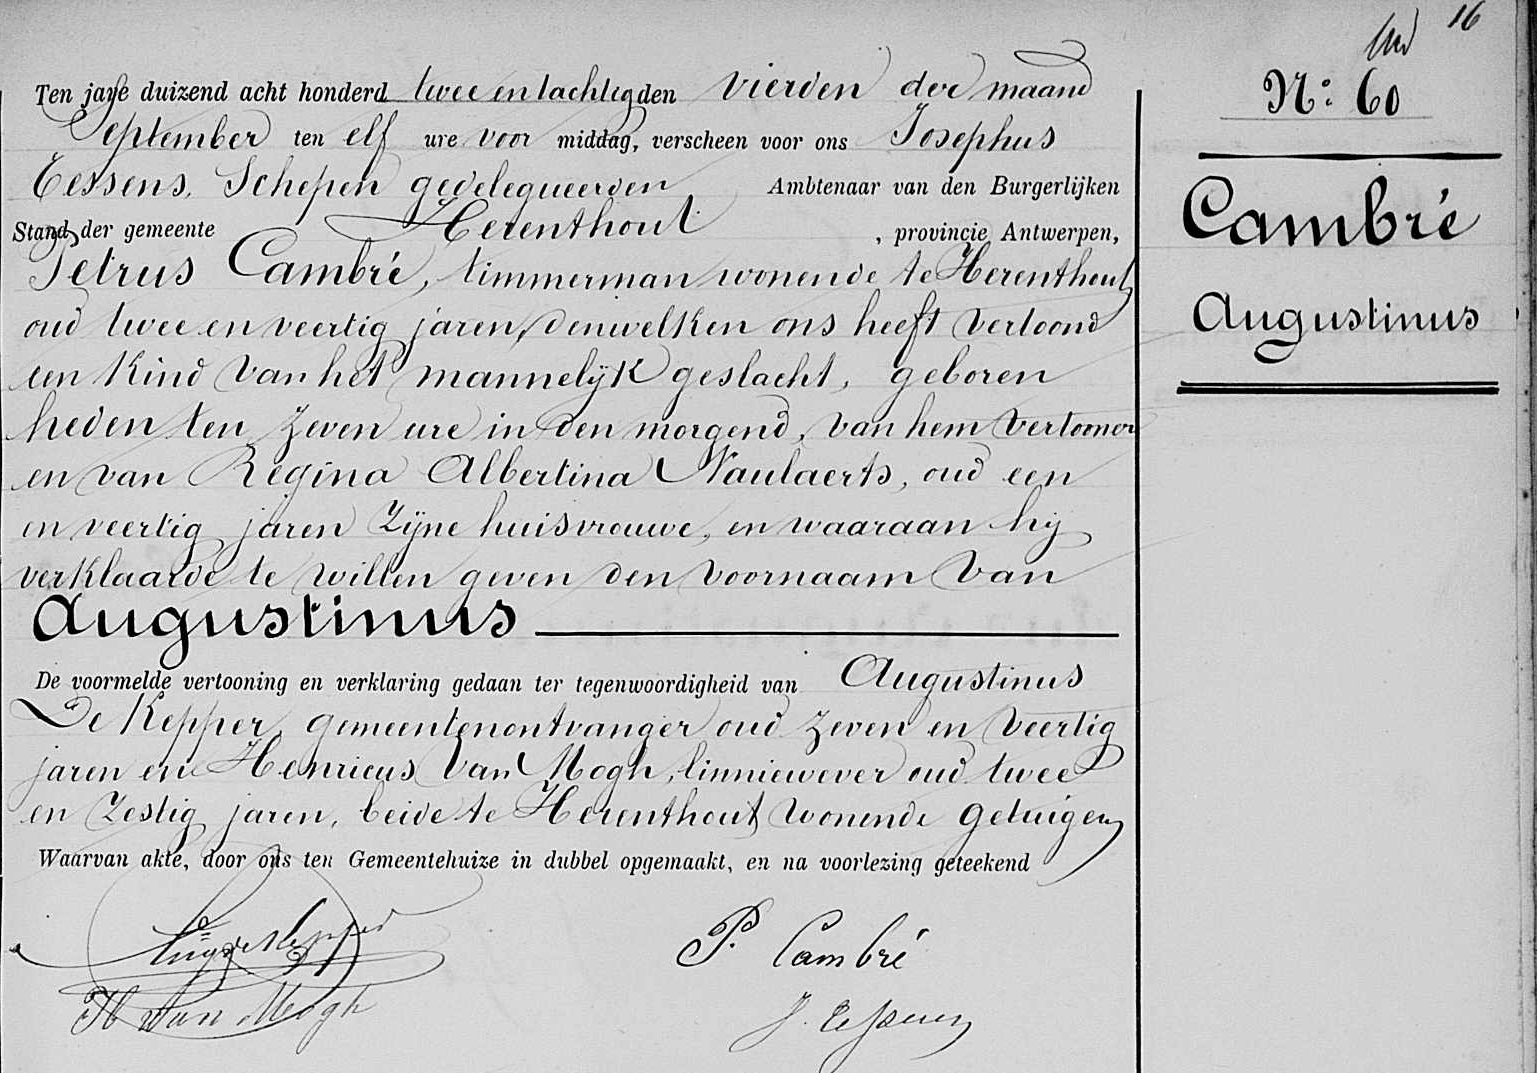 16
N.º 60
Cambré
Augustinus
Ten jare duizend acht honderd twee en tachtig den vierden der maand
September ten elf ure voor middag, verscheen voor ons Josephus
Eessens, Schepen gedelegueerden Ambtenaar van den Burgerlijken
Stand der gemeente Herenthout, provincie Antwerpen,
Petrus Cambré, timmerman wonende te Herenthout
oud twee en veertig jaren, denwelken ons heeft vertoond
een Kind van het mannelijk geslacht, geboren
heden ten zeven ure in den morgend, van hem vertooner
en van Regina Albertina Naulaerts, oud een
en veertig jaren zijne huisvrouwe, en waaraan hij
verklaarde te willen geven den voornaam van
Augustinus
De voormelde vertooning en verklaring gedaan ter tegenwoordigheid van Augustinus
De Kepper, gemeentenontvanger oud zeven en veertig
jaren en Henricus Van Mogh, linniewever oud twee
en zestig jaren, beide te Herenthout wonende getuigen
Waarvan akte, door ons ten Gemeentehuize in dubbel opgemaakt, en na voorlezing geteekend
Aug de Kepper
P. Cambré
H Van Mogh
J. Eessens